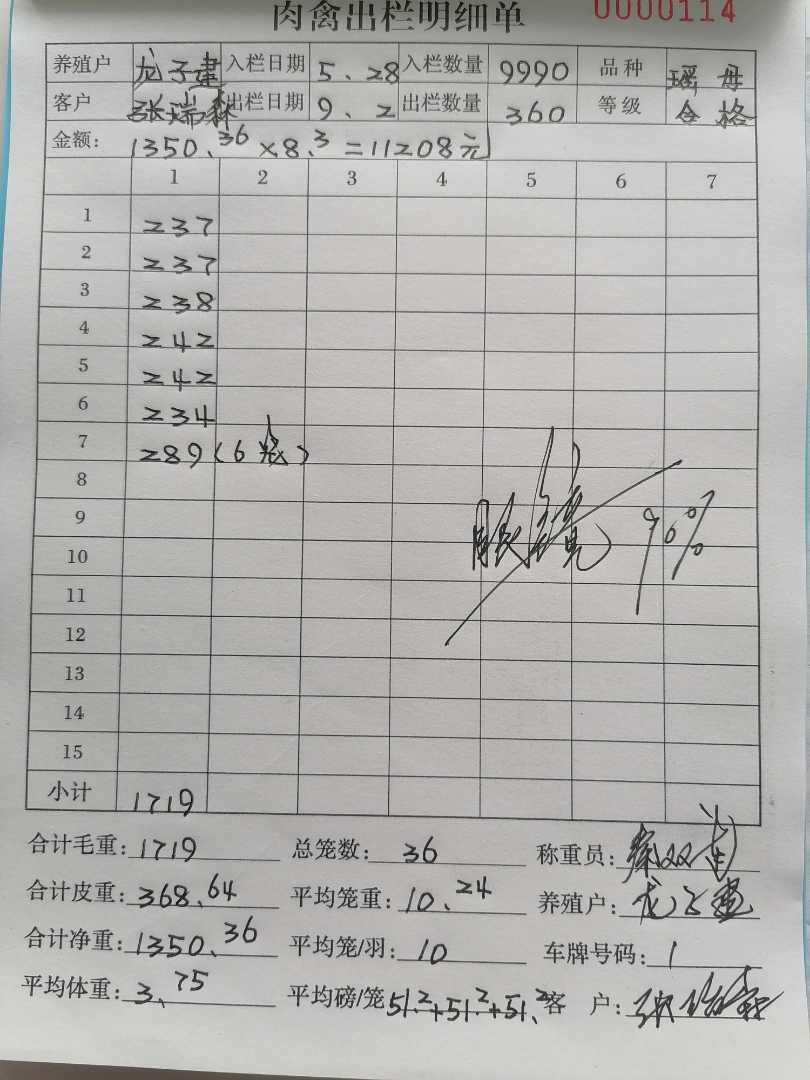 肉禽出栏明细单 0000114
养殖户 龙子建 入栏日期 5.28 入栏数量 9990 品种 瑶母
客户 张瑞森 出栏日期 9.2 出栏数量 360 等级 合格
金额: 1350.36×8.3=11208元
1 2 3 4 5 6 7
1 237
2 237
3 238
4 242
5 242
6 234
7 289(6笼)
8
9 眼镜 96%
10
11
12
13
14
15
小计 1719
合计毛重: 1719 总笼数: 36 称重员:
合计皮重: 368.64 平均笼重: 10.24 养殖户: 龙子建
合计净重: 1350.36 平均笼/羽: 10 车牌号码: 1
平均体重: 3.75 平均磅/笼 51.2+51.2+51.2 客 户: